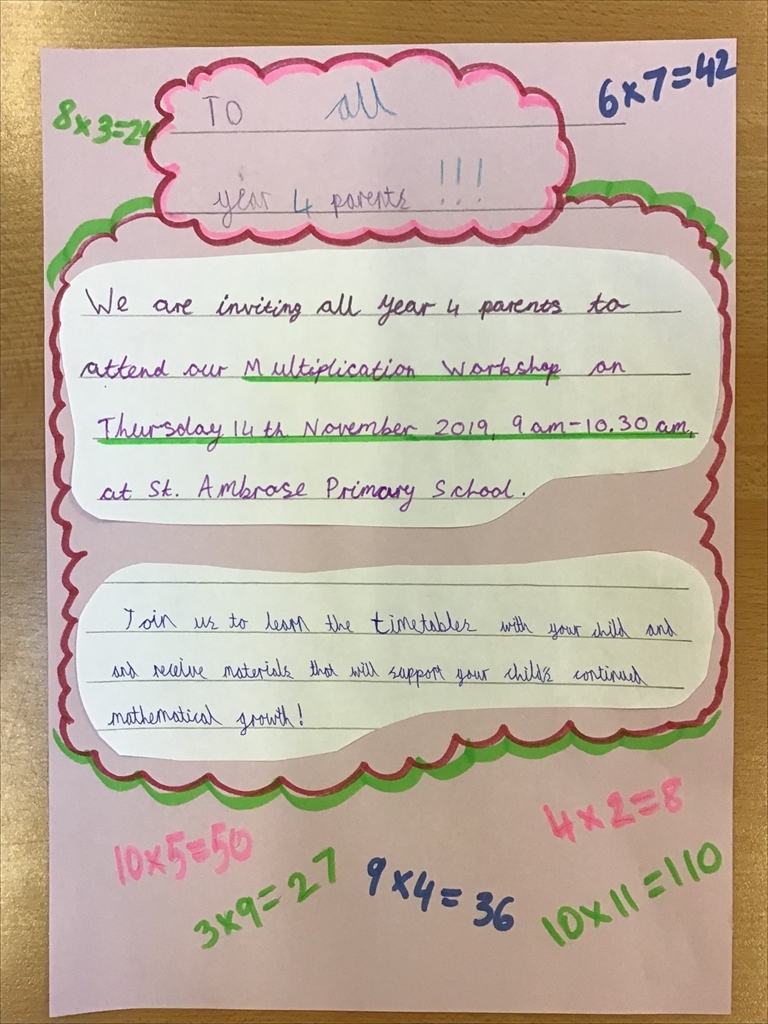 8x3=24
6x7=42
TO all
year 4 parents !!!
We are inviting all Year 4 parents to
attend our Multiplication Workshop on
Thursday 14th November 2019, 9am-10.30am,
at St. Ambrose Primary School.
Join us to learn the timetables with your child and
and receive materials that will support your child's continued
mathematical growth!
10x5=50
4x2=8
3x9=27
9x4=36
10x11=110